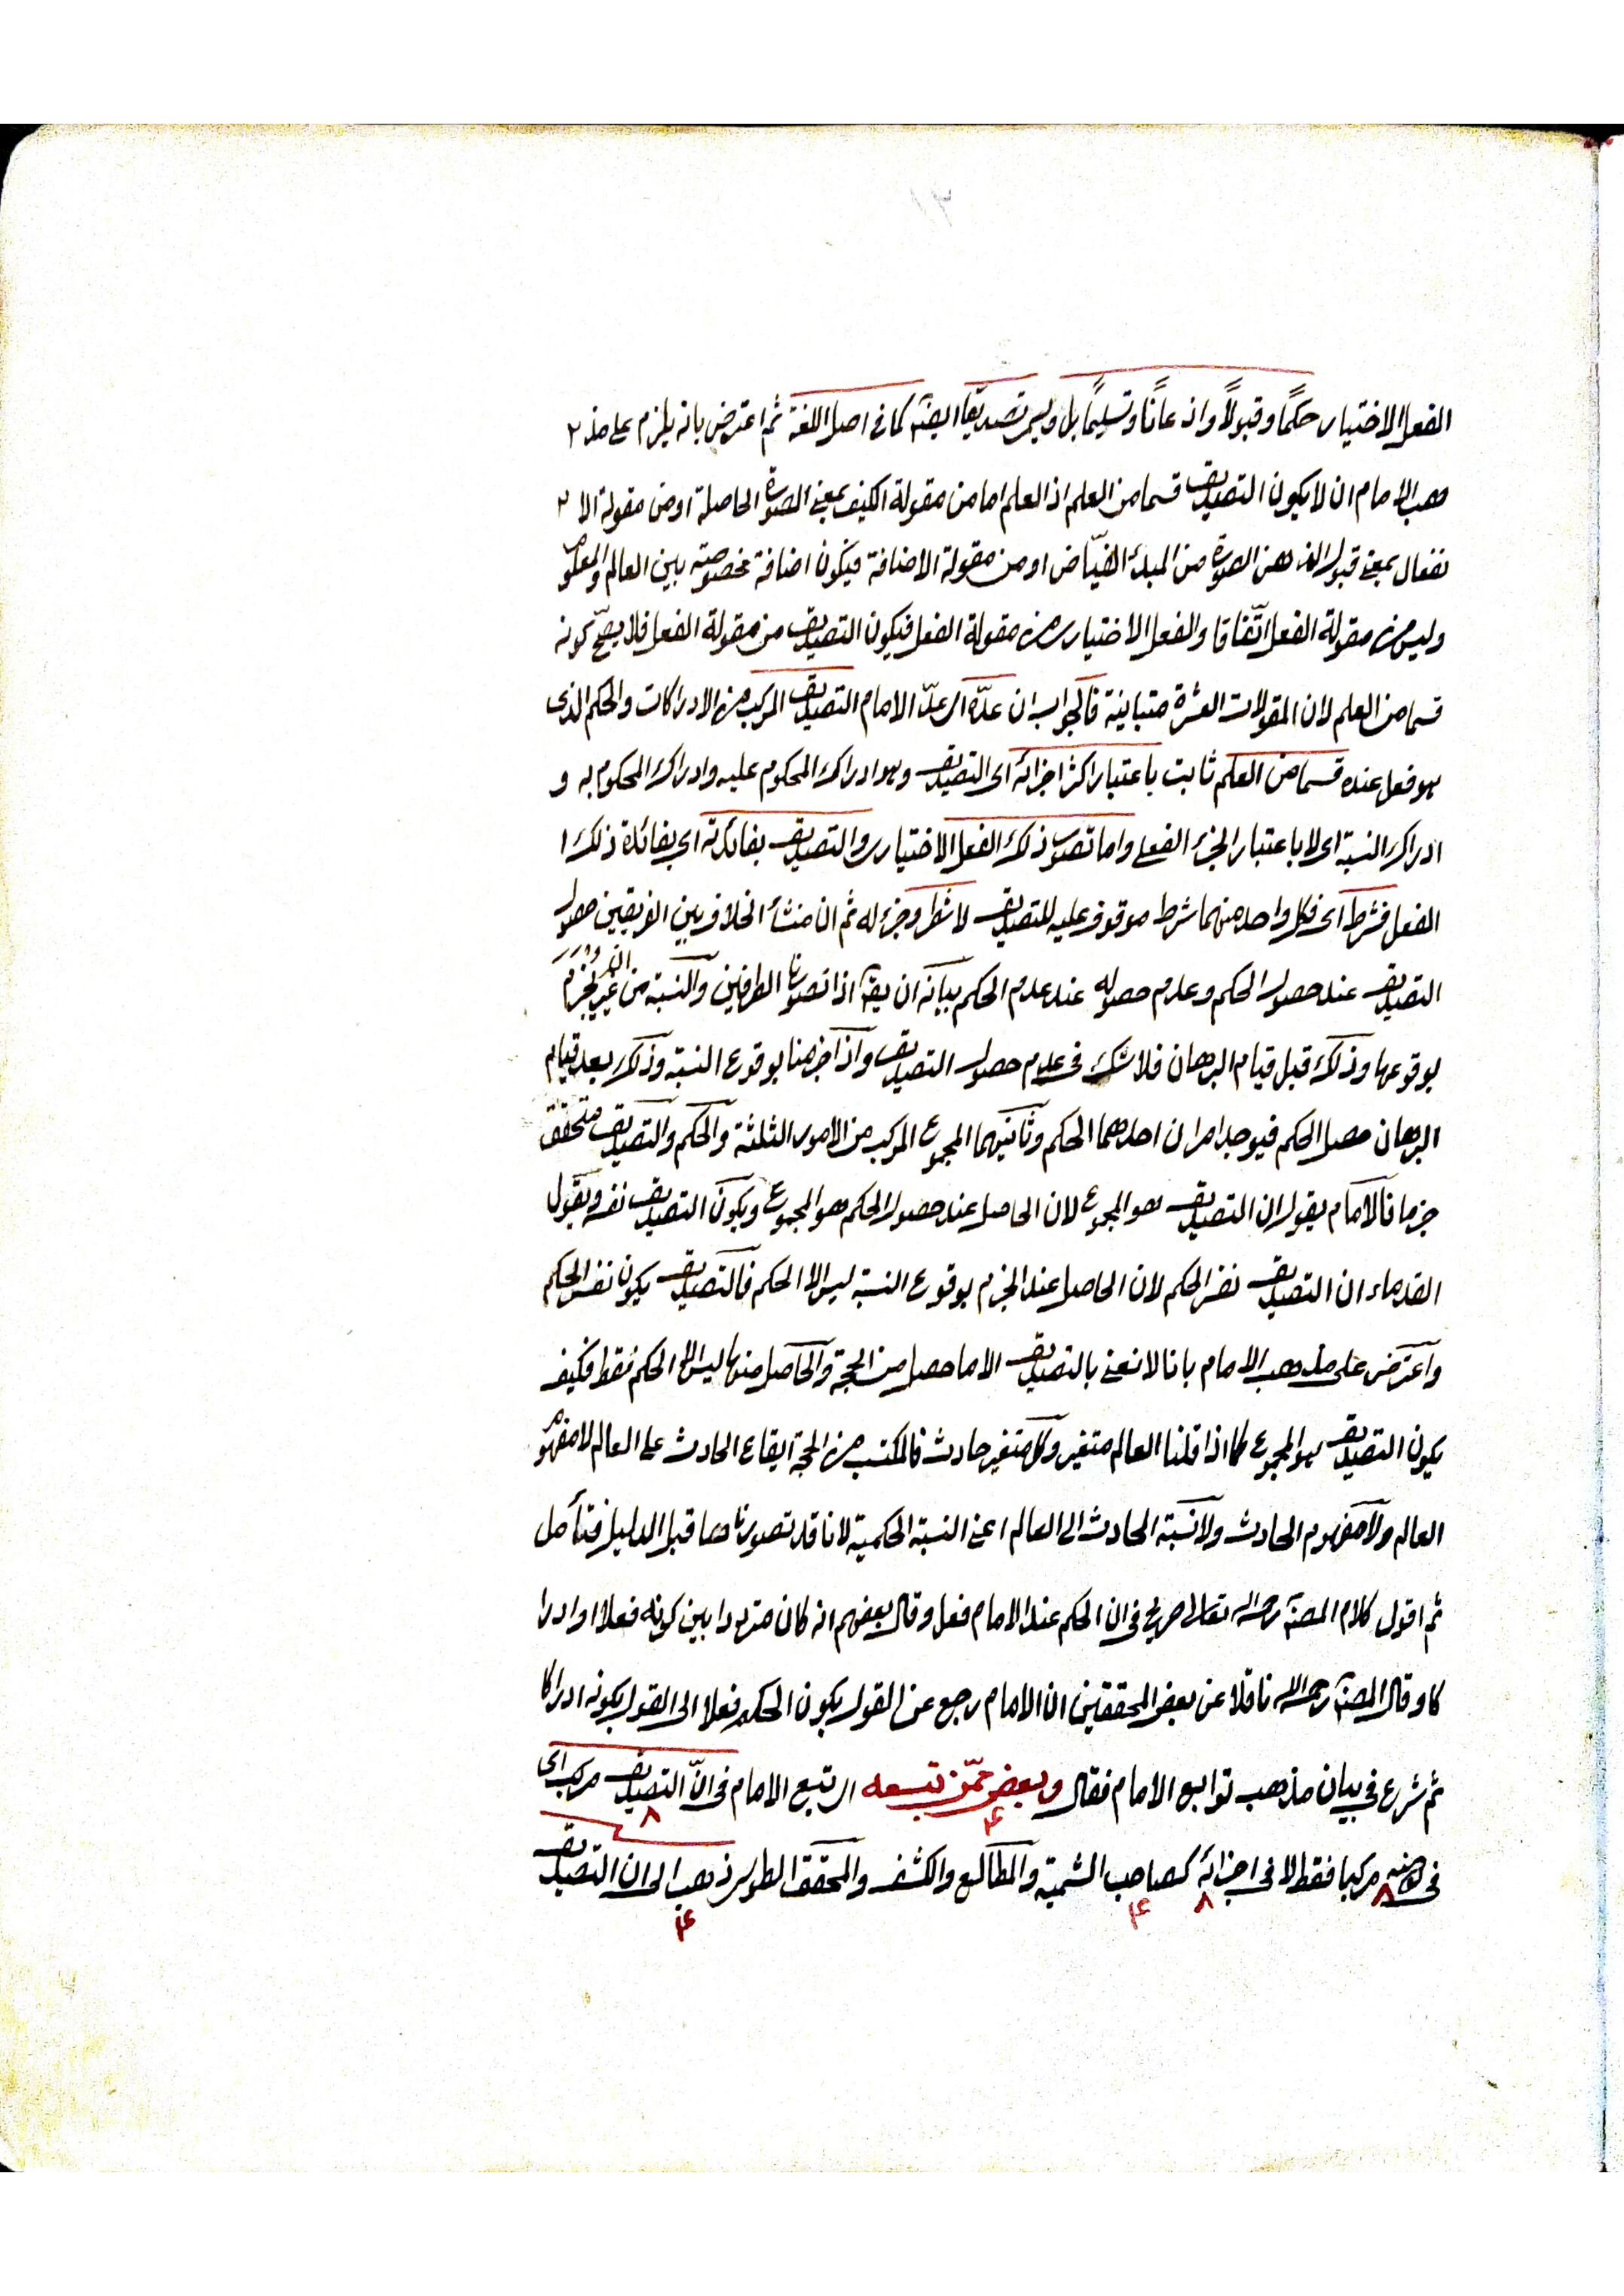 ١٣
الفعل الاختياري حكمًا وقبولاً واذعانًا وتسليمًا بل ويسمى تصديقًا ايضا كما فى اصل اللغة ثم اعترض بانه يلزم على مذ
هب الامام ان لا يكون التصديق قسما من العلم اذ العلم اما من مقولة الكيف بمعنى الصورة الحاصلة او من مقولة الا
نفعال بمعنى قبول الذهن الصورة من المبدء الفيّاض او من مقولة الاضافة فيكون اضافة مخصوصة بين العالم والمعلوم
وليس من مقولة الفعل اتّفاقا والفعل الاختيارى من مقولة الفعل فيكون التصديق من مقولة الفعل فلا يصحّ كونه
قسما من العلم لان المقولات العشرة متباينة فالجواب ان عدّه اى عدّ الامام التصديق المركب من الادراكات والحكم الذى
هو فعل عنده قسما من العلم ثابت باعتبار اكثر اجزائه اى التصديق وهو ادراك المحكوم عليه وادراك المحكوم به و
ادراك النسبة اى لا باعتبار الجزء الفعلى واما تصور ذلك الفعل الاختيارى والتصديق بفائدته اى بفائدة ذلك ا
الفعل فشرط اى فكل واحد منهما شرط موقوف عليه للتصديق لا شطر وجزء له ثم ان منشأ الخلاف بين الفريقين حصول
التصديق عند حصول الحكم وعدم حصوله عند عدم الحكم بيانه ان يقه اذا تصورنا الطرفين والنسبة من غير الجزم
بوقوعها وذلك قبل قيام البرهان فلا شك فى عدم حصول التصديق واذا جزمنا بوقوع النسبة وذلك بعد قيام
البرهان حصل الحكم فيوجد امران احدهما الحكم وثانيهما المجموع المركب من الامور الثلثة والحكم والتصديق متحقق
جزما فالامام يقول ان التصديق هو المجموع لان الحاصل عند حصول الحكم هو المجموع ويكون التصديق نفسه ويقول
القدماء ان التصديق نفس الحكم لان الحاصل عند الجزم بوقوع النسبة ليس الا الحكم فالتصديق يكون نفس الحكم
واعترض على مذهب الامام بانا لا نعنى بالتصديق الا ما حصل من الحجة والحاصل منها ليس الا الحكم فقط فكيف
يكون التصديق هو المجموع كما اذا قلنا العالم متغير وكل متغير حادث فالمكتسب من الحجة ايقاع الحادث على العالم لا مفهوم
العالم ولا مفهوم الحادث ولا نسبة الحادث الى العالم اعنى النسبة الحكمية لانا قد تصورناها قبل الدليل فتأمل
ثم اقول كلام المصنف رحمه الله تعالى صريح فى ان الحكم عند الامام فعل وقال بعضهم انه كان مترددا بين كونه فعلا او ادرا
كا وقال المصنف رحمه الله ناقلا عن بعض المحققين ان الامام رجع عن القول بكون الحكم فعلا الى القول بكونه ادراكا
ثم شرع فى بيان مذهب توابع الامام فقال وبعض ممّن تبعه اى تبع الامام فى انّ التصديق مركب اى
فى مركبا فقط لا فى اجزائه كصاحب الشمسية والمطالع والكشف والمحقق الطوسى ذهب الى ان التصديق